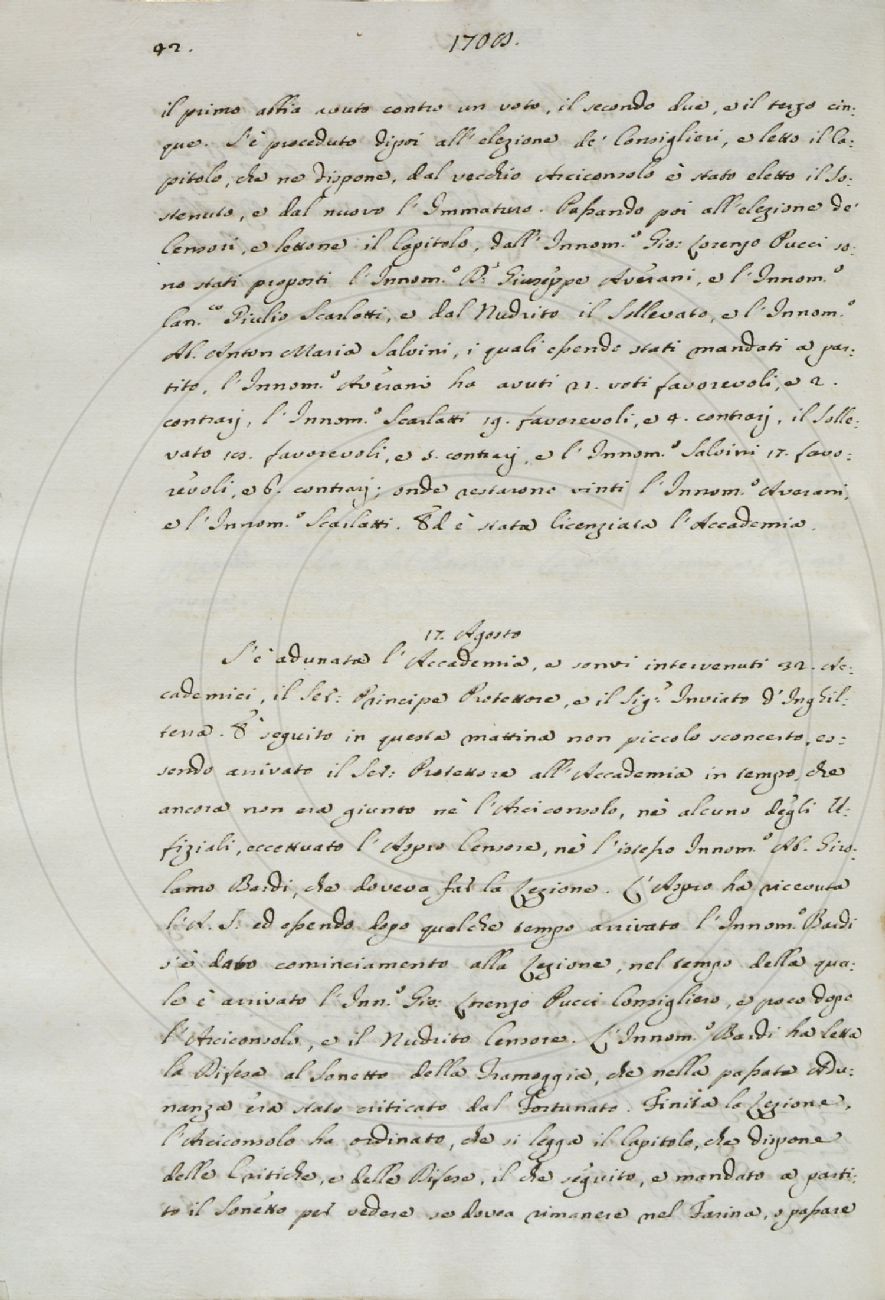 42.
1708.
il primo abbia avuto contro un voto, il secondo due, e il terzo cin:
que. S'è proceduto dipoi all'elezione de' Consiglieri, e letto il Ca:
pitolo, che ne dispone, dal vecchio Arciconsolo è stato eletto il So:
stenuto, e dal nuovo l'Immaturo. Passando poi all'elezione de'
Censori, e lettone il Capitolo, dall'Innom.º Gio: Lorenzo Pucci so:
no stati proposti l'Innom.º D.r Giuseppe Averani, e l'Innom.º
Can.co Giulio Scarlatti, e dal Nudrito il Sollevato, e l'Innom.º
Ab. Anton Maria Salvini, i quali essendo stati mandati a par:
tito, l'Innom.º Averani ha avuti 21. voti favorevoli, e 2.
contrarj, l'Innom.º Scarlatti 19. favorevoli, e 4. contrarj, il Solle:
vato 18. favorevoli, e 5. contrarj, e l'Innom.º Salvini 17. favo:
revoli, e 6. contrarj; onde restarono vinti l'Innom.º Averani,
e l'Innom.º Scarlatti. Ed è stata licenziata l'Accademia.
17. Agosto
S'è adunata l'Accademia, e sonvi intervenuti 32. Ac:
cademici, il Ser: Principe Protettore, e il Sig.r Inviato d'Inghil:
terra. È seguito in questa mattina non piccolo sconcerto, es:
sendo arrivato il Ser: Protettore all'Accademia in tempo, che
ancora non era giunto nè l'Arciconsolo, nè alcuno degli U:
fiziali, eccettuato l'Aspro Censore, nè l'istesso Innom.º Ab. Giro:
lamo Bardi, che doveva far la Lezione. L'Aspro ha ricevuta
l'A. S. ed essendo dopo qualche tempo arrivato l'Innom.º Bardi
s'è dato cominciamento alla Lezione, nel tempo della qua:
le è arrivato l'Inn.º Gio: Lorenzo Pucci Consigliero, e poco dopo
l'Arciconsolo, e il Nudrito Censore. L'Innom.º Bardi ha letta
la Difesa al Sonetto della Tramoggia, che nella passata Adu:
nanza era stato criticato dal Fortunato. Finita la Lezione,
l'Arciconsolo ha ordinato, che si legga il Capitolo, che dispone
delle Critiche, e delle Difese, il che seguito, e mandato a parti:
to il Sonetto per vedere se dovea rimanere nel Farina, o passare